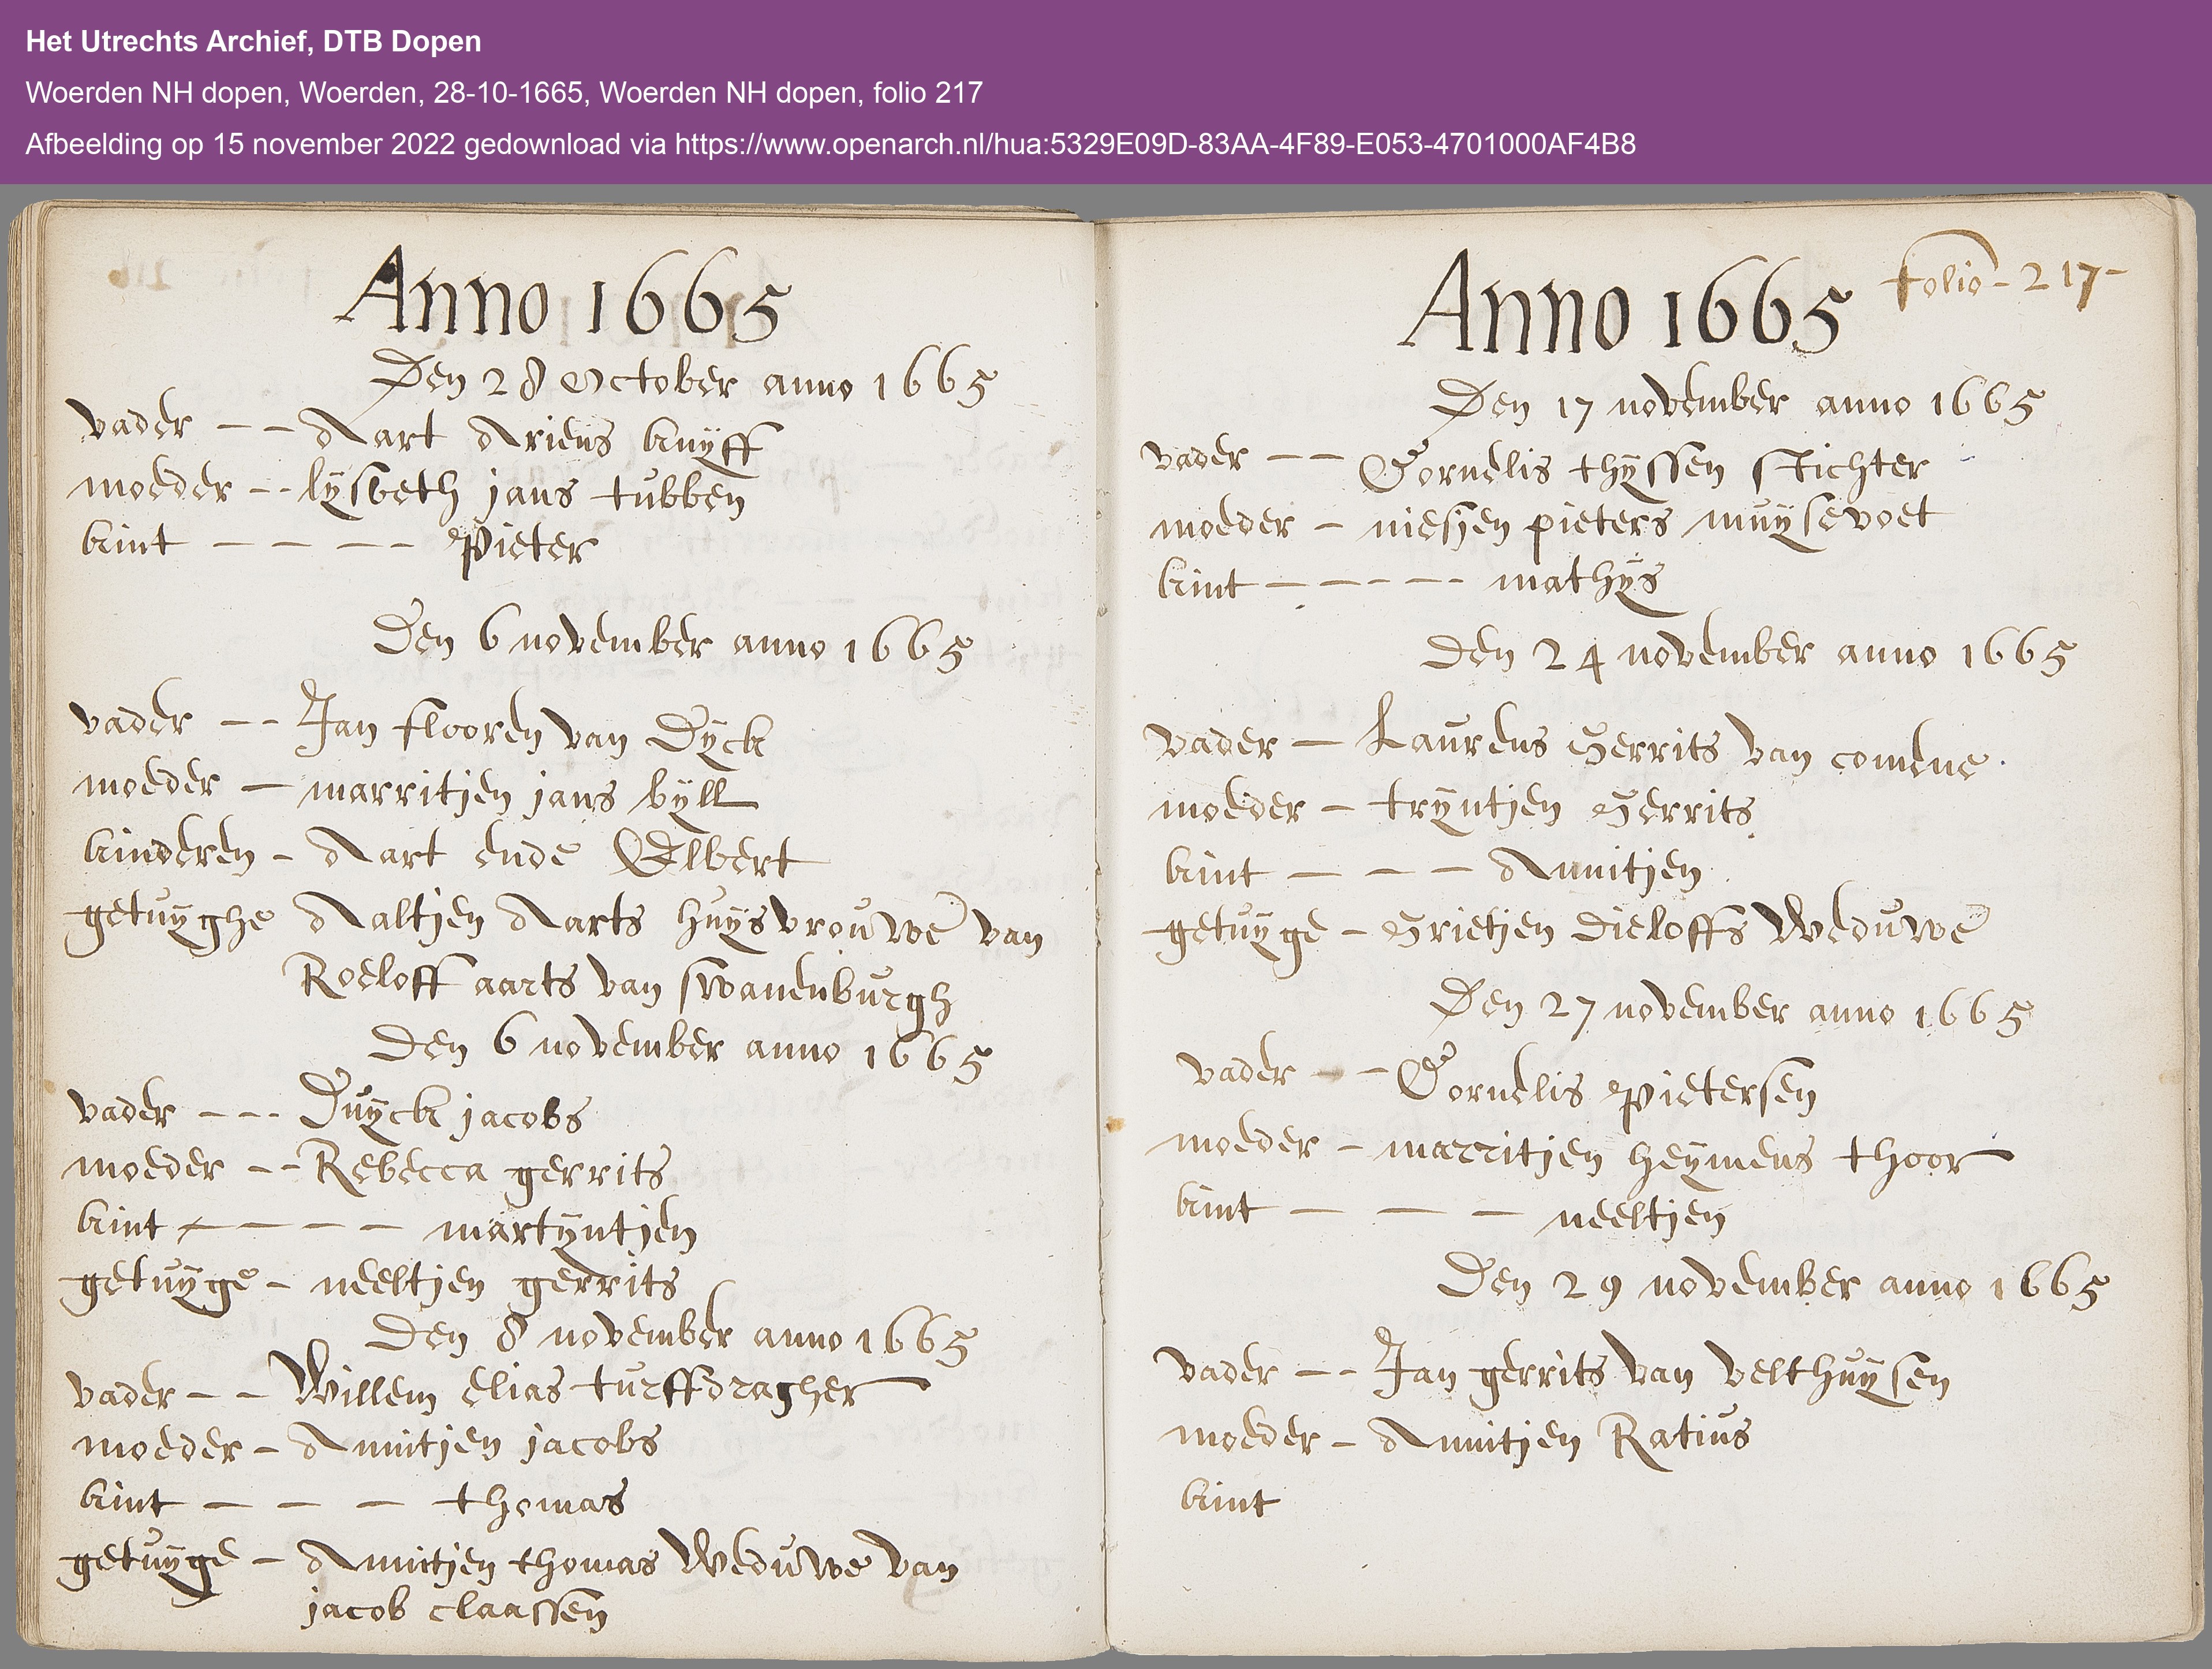 Het Utrechts Archief, DTB Dopen
Woerden NH dopen, Woerden, 28-10-1665, Woerden NH dopen, folio 217
Afbeelding op 15 november 2022 gedownload via https://www.openarch.nl/hua:5329E09D-83AA-4F89-E053-4701000AF4B8
Anno 1665
Den 28 October anno 1665
vader -- Aart Ariens knÿff
moeder -- lÿsbeth jans tubben
kint ---- Pieter
Den 6 november anno 1665
vader -- Jan flooren van Dÿck
moeder - marritjen jans bÿll
kinderen - Aart ende Elbert
getuÿghe Aaltjen Aarts huÿsvrouwe van
Roeloff aarts van swanenburgh
Den 6 november anno 1665
vader --- Duÿck jacobs
moeder -- Rebecca gerrits
kint ---- martÿntjen
getuÿge - neeltjen gerrits
Den 8 november anno 1665
vader -- Willem elias turffdragher
moeder - Annitjen jacobs
kint --- thomas
getuÿge - Annitjen thomas Weduwe van
jacob claassen
Anno 1665
folio - 217 -
Den 17 november anno 1665
vader -- Cornelis thÿssen stichter
moeder - niesjen pieters muÿsevoet
kint ----- mathÿs
Den 24 november anno 1665
vader - Laurens Gerrits van comene
moeder - trÿntjen Gerrits
kint --- Annitjen
getuÿge - Grietjen dieloffs Weduwe
Den 27 november anno 1665
vader -- Cornelis Pietersen
moeder - marritjen heÿmens thoor
kint --- neeltjen
Den 29 november anno 1665
vader -- Jan gerrits van velthuÿsen
moeder - Annitjen Ratius
kint